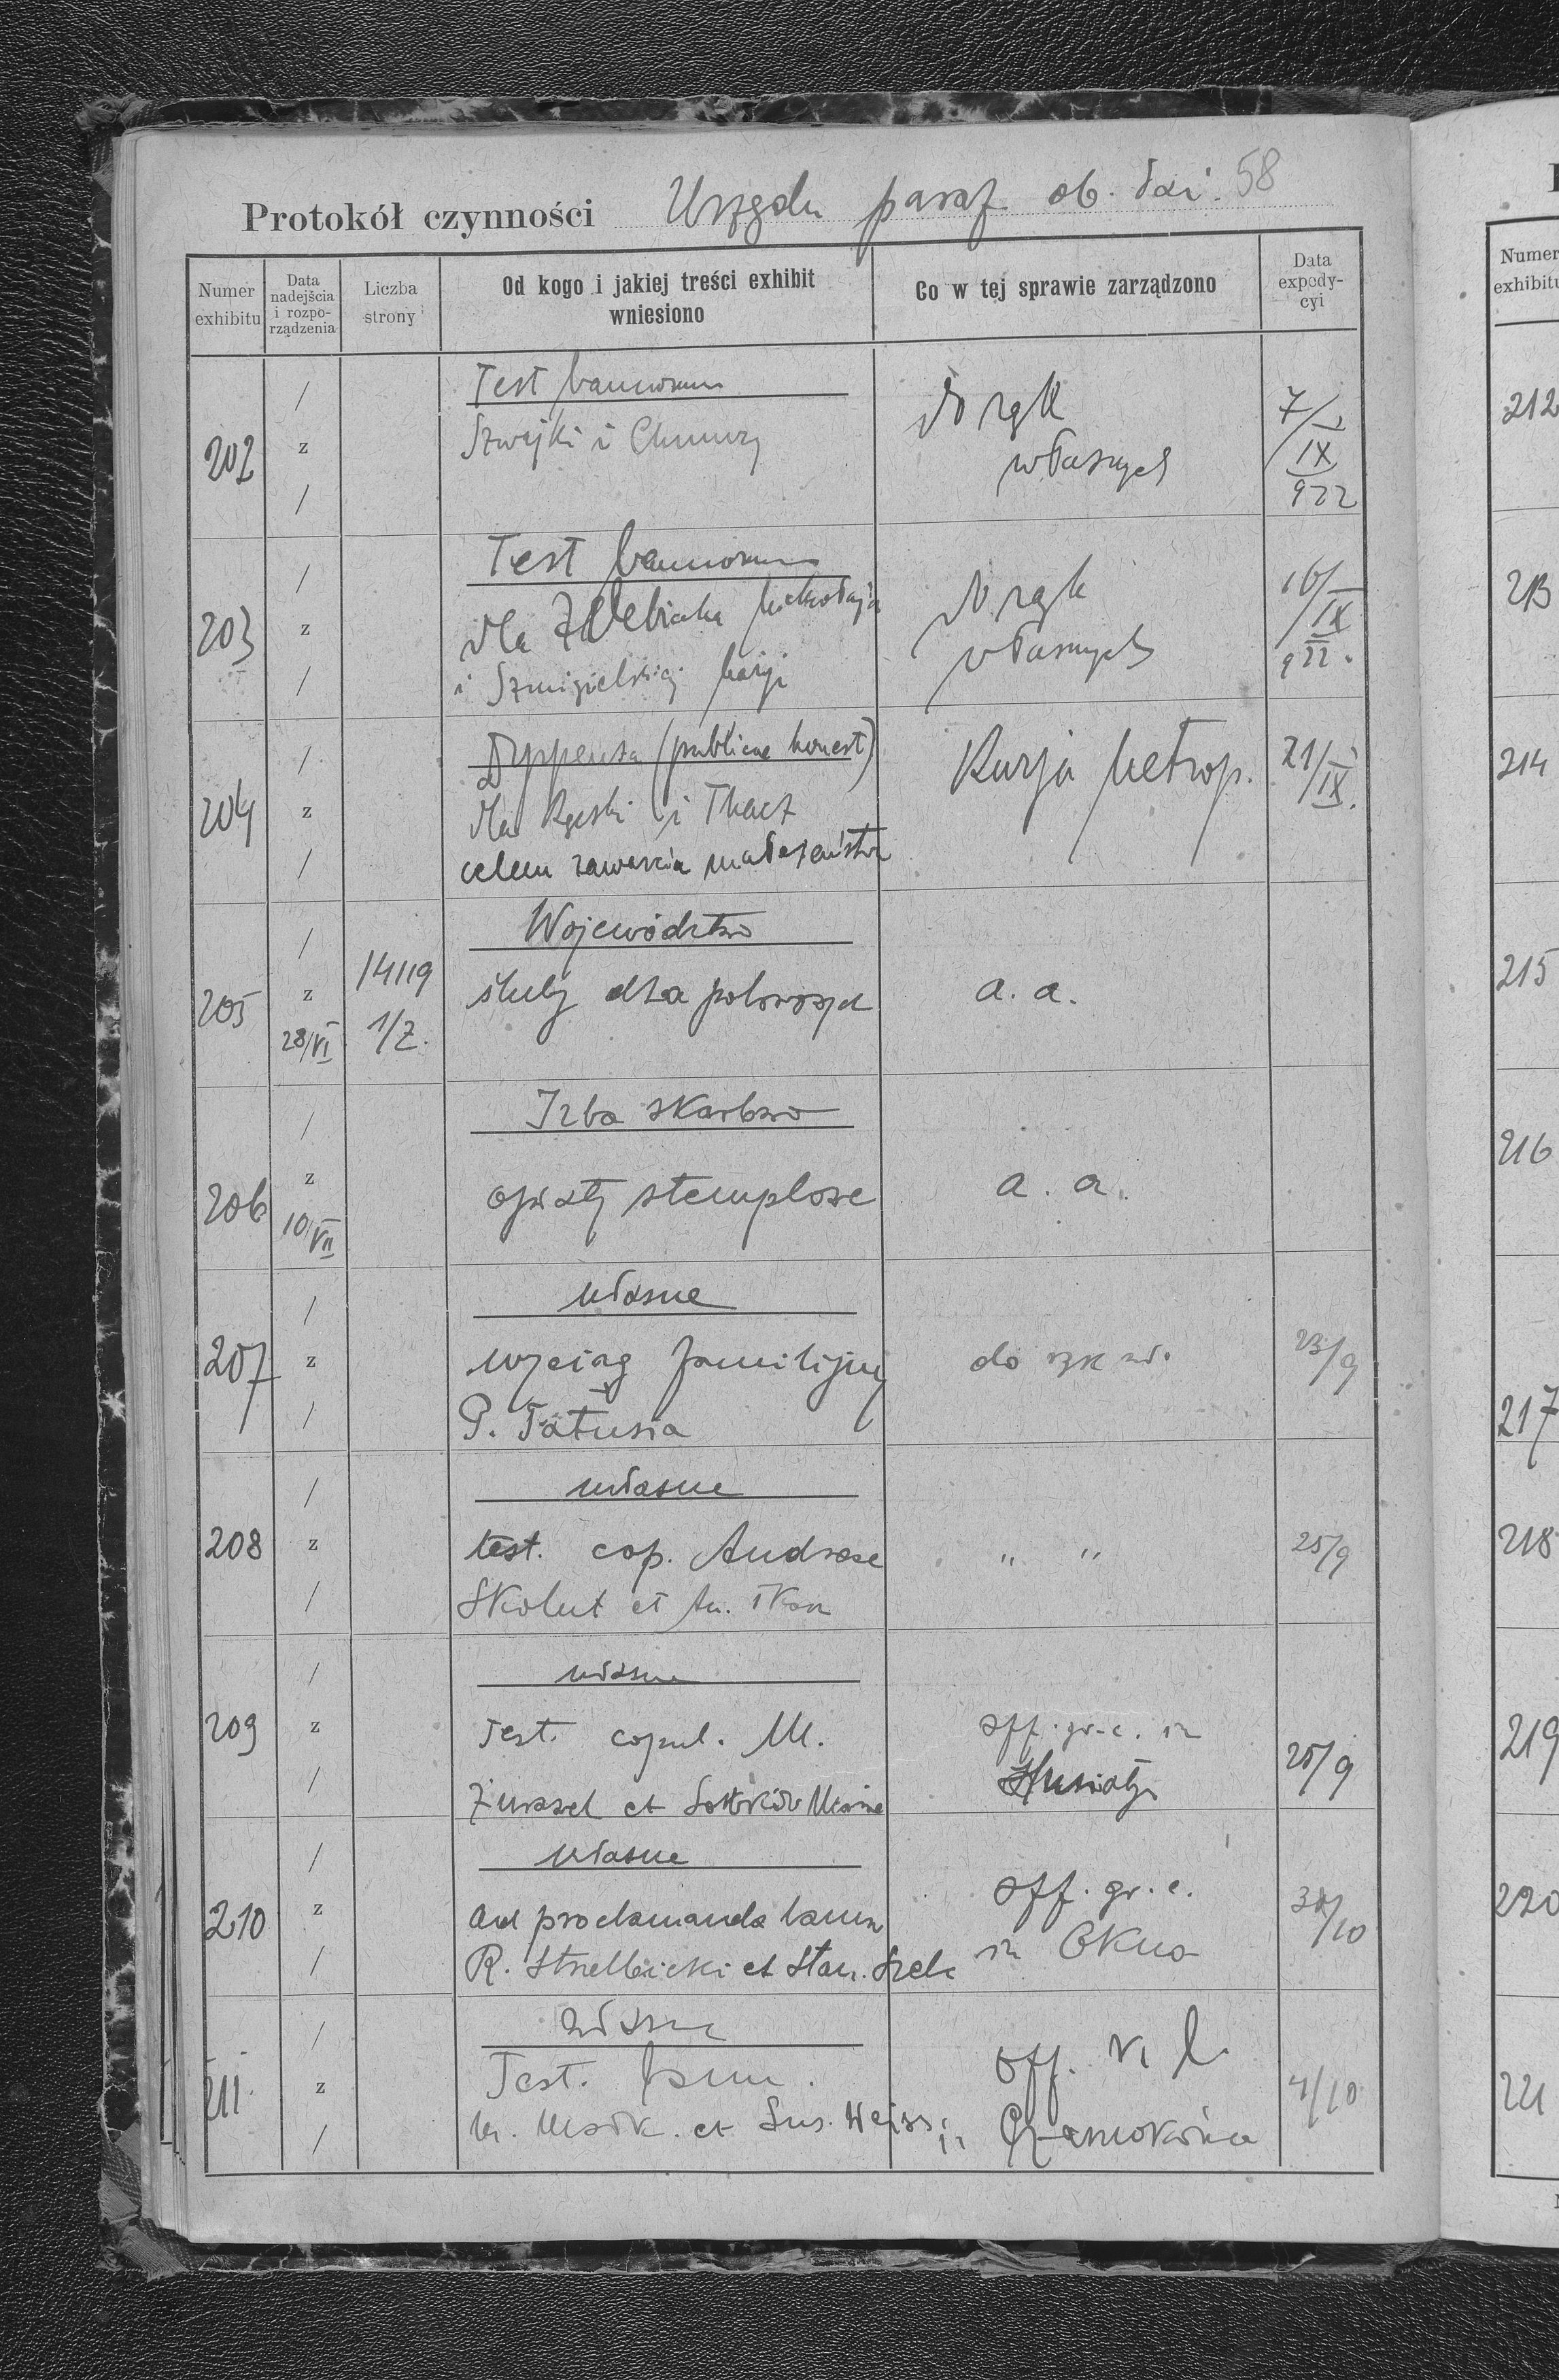 Protokół czynności Urzędu paraf. ob. łać. 58
Numer exhibitu
Data nadejścia i rozporządzenia
Liczba strony
Od kogo i jakiej treści exhibit wniesiono
Co w tej sprawie zarządzono
Data expedycyi
202
/ z /
Test bannorum
Szwejki i Chmury
Do rąk
własnych
7/IX 922
203
/ z /
Test bannorum
dla Mikołaja
i Szmigielskiej Marji
Do rąk
własnych
16/IX 922.
204
/ z /
Dyspensa (publicae honest)
dla i Tkacz
celem zawarcia małżeństwa
Kurja Metrop.
21/IX.
205
/ z 28/VI
14119
1/Z.
Województwo
śluby dla poborowych
a. a.
206
/ z 10/VII
Izba skarbowa
opłaty stemplowe
a. a.
207
/ z /
własne
wyciąg familijny
P. Tatusia
do rąk wł.
23/9
208
/ z /
własne
test. cop. Andreae
Skolut et An.
" "
25/9
209
/ z /
własne
Test. copul. M.
et Mariae
off. gr. c. in
25/9
210
/ z /
własne
ad proclamanda bann
R. Strzelbicki et Stan.
off. gr. c.
in Okno
/10
211
/ z /
własne
Test. bann.
et Weiss
off. r. l.
in Czarnokońce
4/10
Numer
exhibitu
212
213
214
215
216
217
218
219
220
221